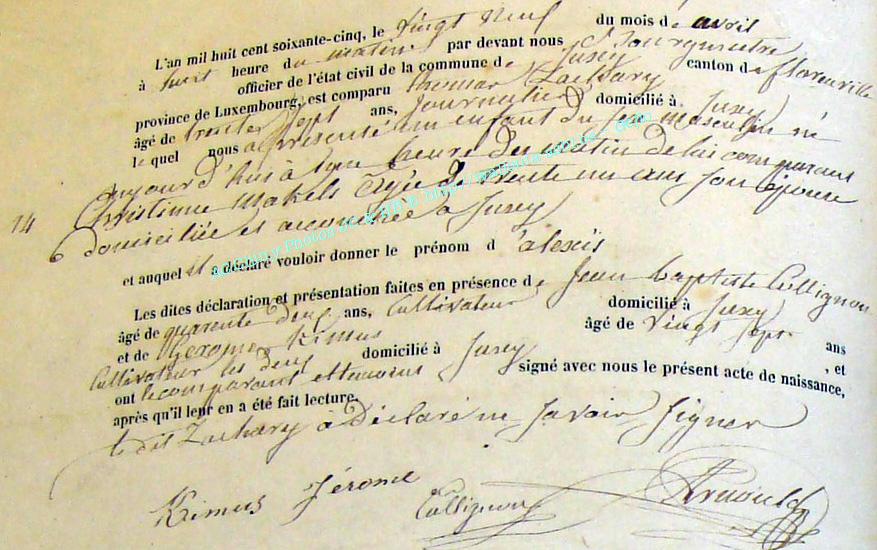 L'an mil huit cent soixante-cinq, le vingt neuf du mois de avril
à huit heure du matin par devant nous Bourgmestre
officier de l'état civil de la commune de Jusey canton de florenville
province de Luxembourg, est comparu thomas Zachary
âgé de trente sept ans, Journalier domicilié à Jusey
le quel nous a présenté un enfant du sexe masculin né
aujour d'hui à heure du matin de lui comparant
Christinne Makels âgée de trente un ans son épouse
14
domiciliée et accouchée à Jusey
et auquel il a déclaré vouloir donner le prénom d 'alexis
Les dites déclaration et présentation faites en présence de Jean baptiste Collignon
âgé de quarente deux ans, Cultivateur domicilié à Jusey
et de Gerome Kimus âgé de vingt sept ans
Cultivateur les deux domicilié à Jusey , et
ont le comparant et temoins signé avec nous le présent acte de naissance,
après qu'il leur en a été fait lecture.
le dit Zachary à déclaré ne savoir signer
Kimus Jérome Collignon